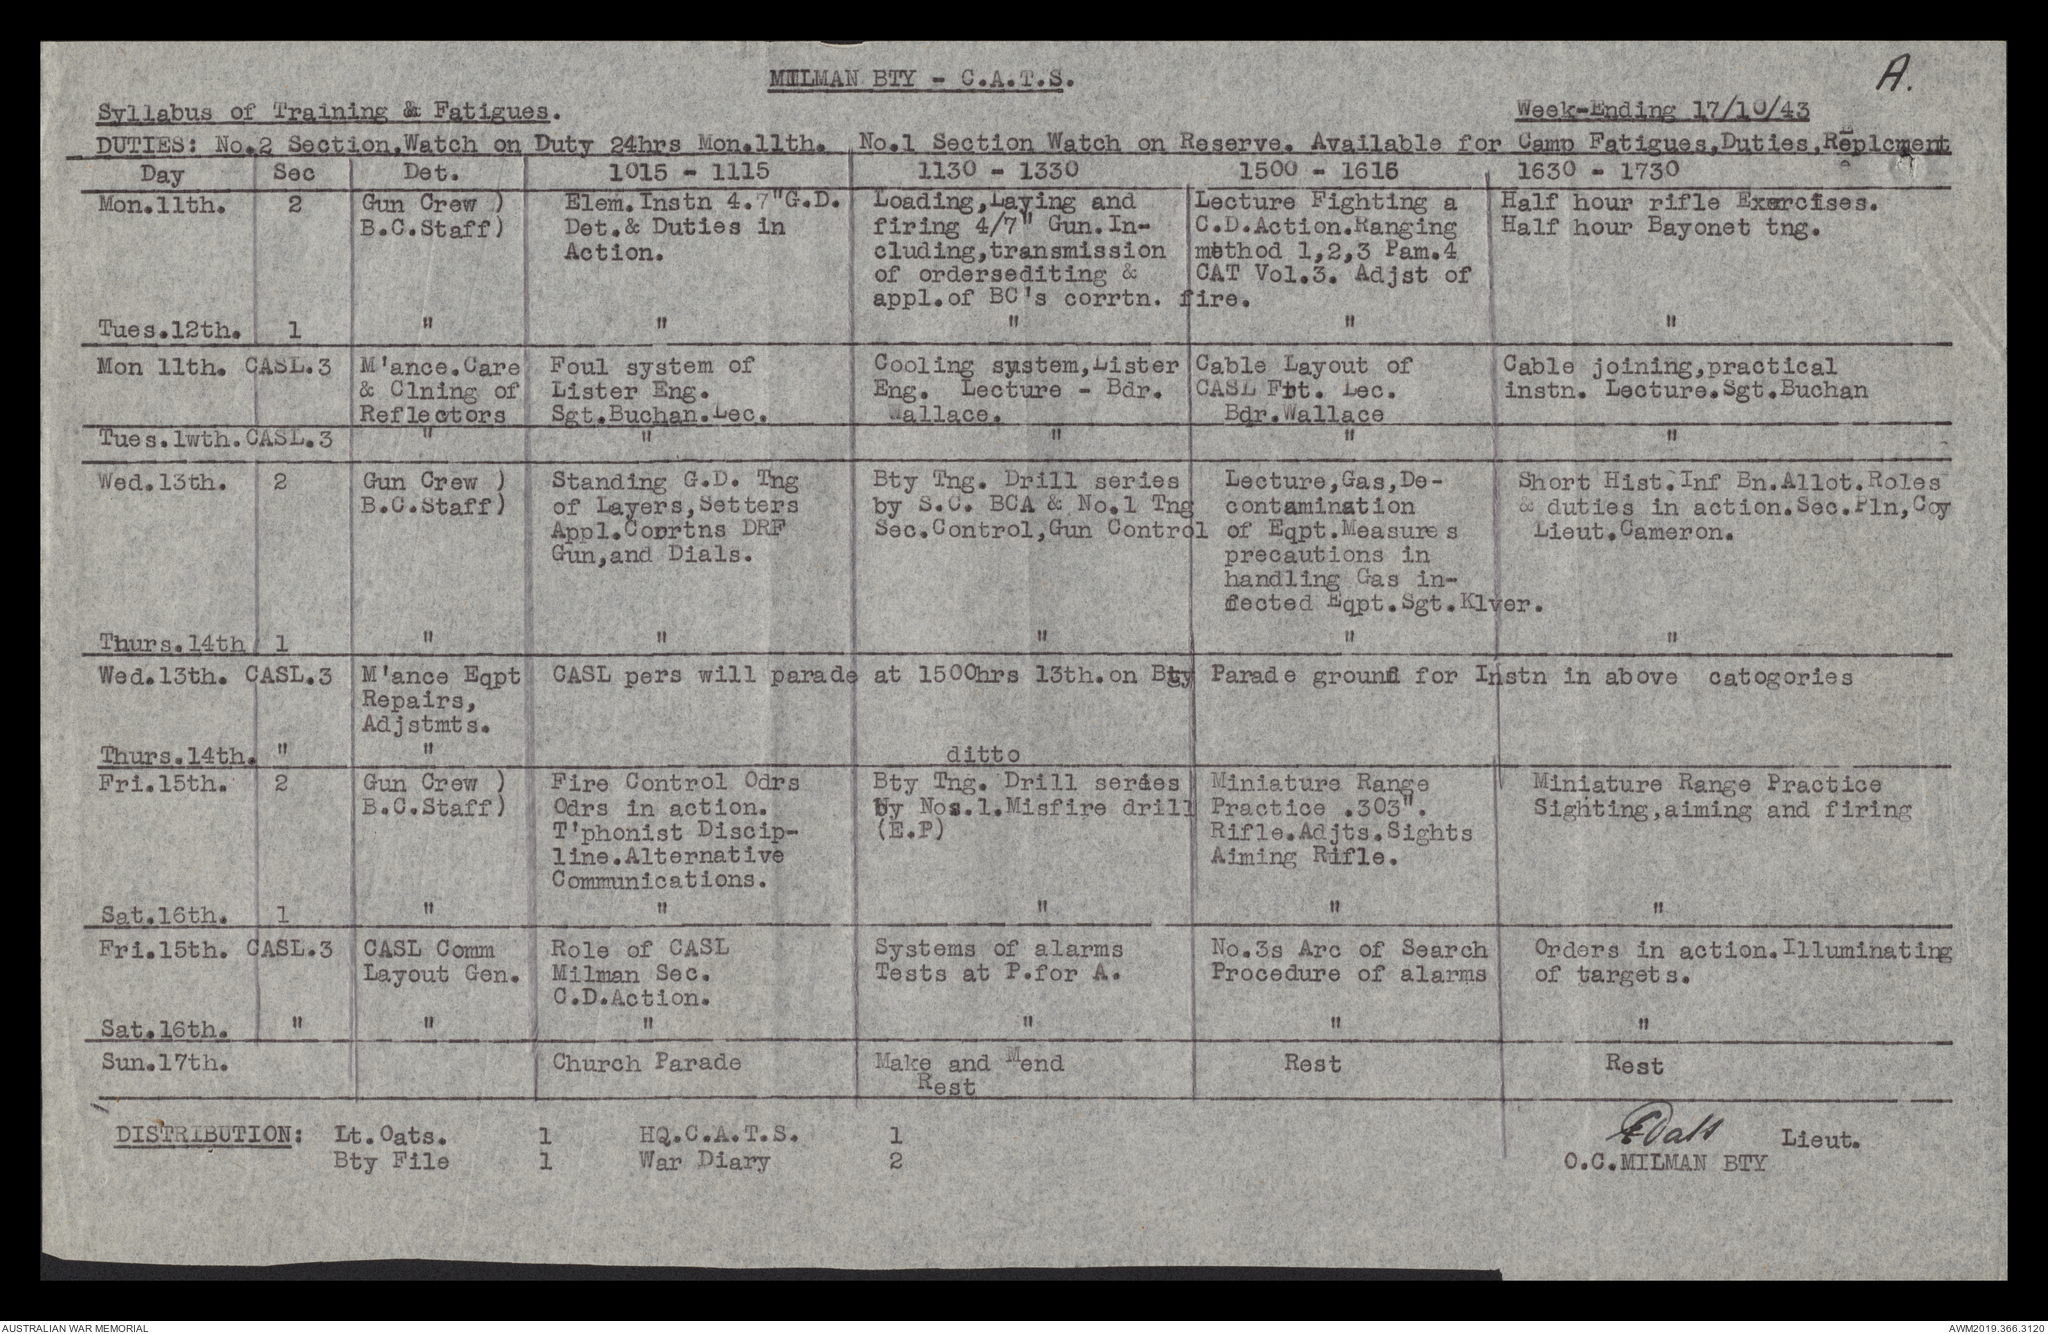 A.
MILMAN BTY - C.A.T.S.
Syllabus of Training & Fatigues. Week-Ending 17/10/43
DUTIES: No.2 Section,Watch on Duty 24hrs Mon.11th. No.1 Section Watch on Reserve. Available for Camp Fatigues,Duties,Replcment
Day Sec Det. 1015 - 1115 1130 - 1330 1500 - 1615 1630 - 1730
Mon.11th. 2 Gun Crew ) Elem.Instn 4.7"G.D. Loading,Laying and Lecture Fighting a Half hour rifle Exercises.
B.C.Staff) Det.& Duties in firing 4/7" Gun.In- C.D.Action.Ranging Half hour Bayonet tng.
Action. cluding,transmission method 1,2,3 Pam.4
of ordersediting & CAT Vol.3. Adjst of
appl.of BC's corrtn. fire.
Tues.12th. 1 " " " " "
Mon 11th. CASL.3 M'ance.Care Foul system of Cooling system,Lister Cable Layout of Cable joining,practical
& Clning of Lister Eng. Eng. Lecture - Bdr. CASL Fbt. Lec. instn. Lecture.Sgt.Buchan
Reflectors Sgt.Buchan.Lec. Wallace. Bdr.Wallace
Tues.1wth. CASL.3 " " " " "
Wed.13th. 2 Gun Crew ) Standing G.D. Tng Bty Tng. Drill series Lecture,Gas,De- Short Hist.Inf Bn.Allot.Roles
B.C.Staff) of Layers,Setters by S.C. BCA & No.1 Tng contamination & duties in action.Sec.Pln,Coy
Appl.Corrtns DRF Sec.Control,Gun Control of Eqpt.Measures Lieut.Cameron.
Gun,and Dials. precautions in
handling Gas in-
fected Eqpt.Sgt.Klver.
Thurs.14th 1 " " " " "
Wed.13th. CASL.3 M'ance Eqpt CASL pers will parade at 1500hrs 13th.on Bty Parade ground for Instn in above catogories
Repairs,
Adjstmts.
Thurs.14th. " " ditto
Fri.15th. 2 Gun Crew ) Fire Control Odrs Bty Tng. Drill series Miniature Range Miniature Range Practice
B.C.Staff) Odrs in action. by Nos.1.Misfire drill Practice .303". Sighting,aiming and firing
T'phonist Discip- (E.P) Rifle.Adjts.Sights
line.Alternative Aiming Rifle.
Communications.
Sat.16th. 1 " " " " "
Fri.15th. CASL.3 CASL Comm Role of CASL Systems of alarms No.3s Arc of Search Orders in action.Illuminating
Layout Gen. Milman Sec. Tests at P.for A. Procedure of alarms of targets.
C.D.Action.
Sat.16th. " " " " " "
Sun.17th. Church Parade Make and Mend Rest Rest
Rest
DISTRIBUTION: Lt.Oats. 1 HQ.C.A.T.S. 1 Lieut.
Bty File 1 War Diary 2 O.C.MILMAN BTY
AUSTRALIAN WAR MEMORIAL AWM2019.366.3120